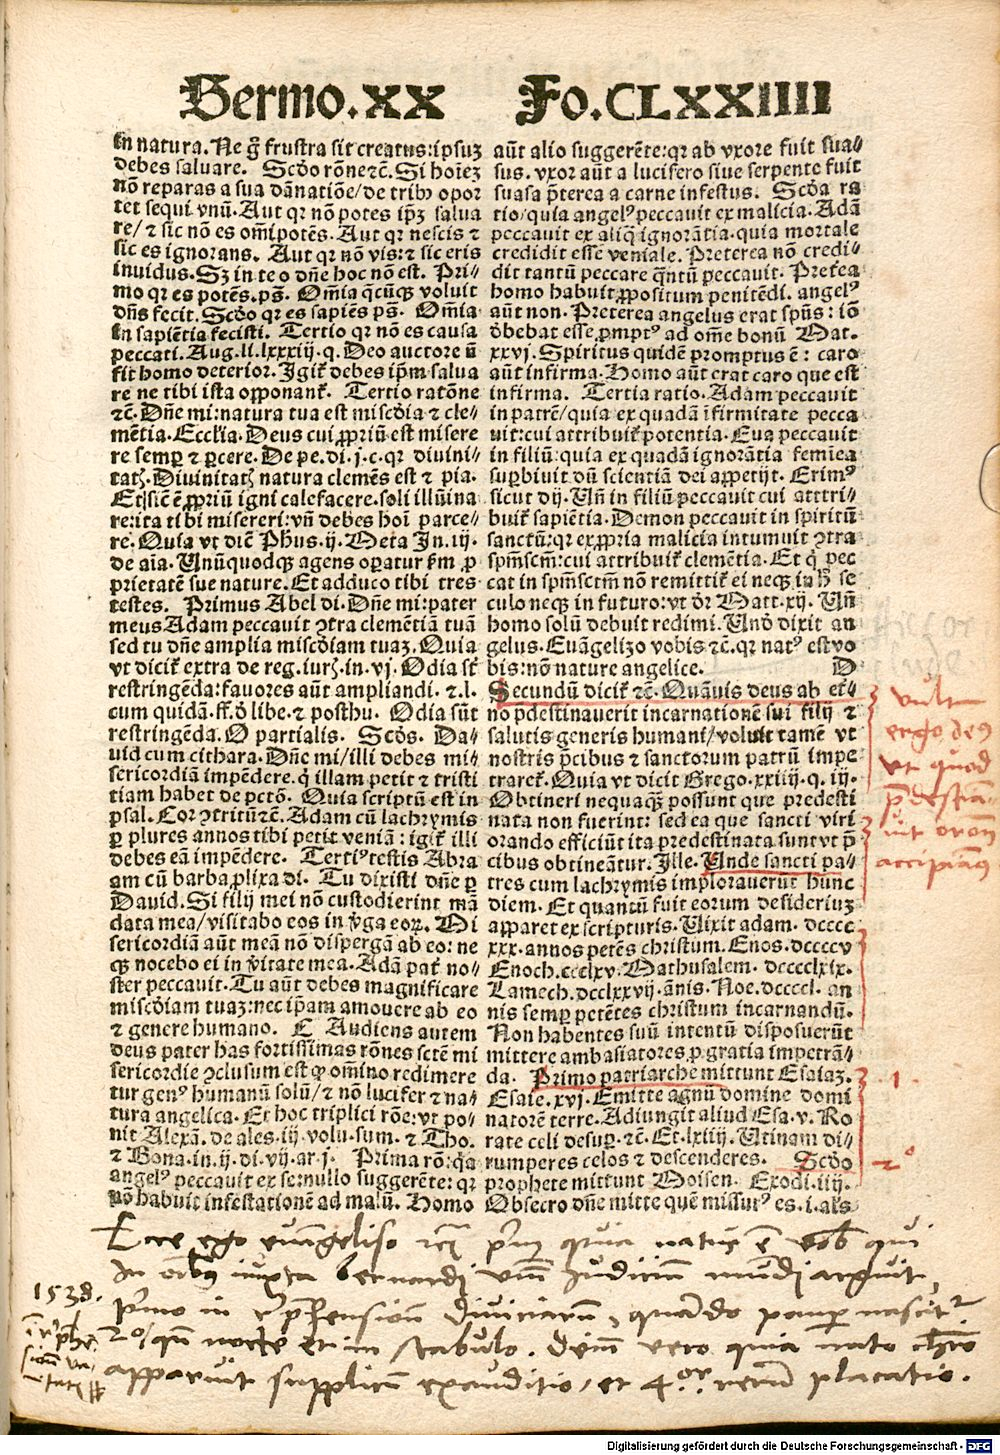 Sermo.XX Fo.CLXXIIII
In natura. Ne gͦ frustra sit creatus: ipsuꝫ
debes saluare. Scd̓o rōne ⁊c̄. Si hoīeꝫ
nō reparas a sua dānatiōe/ de tribꝰ opor
tet sequi vnū. Aut qꝛ nō potes ip̄ꝫ salua
re/ ⁊ sic nō es om̄ipotēs. Aut qꝛ nescis ⁊
sic es ignorans. Aut qꝛ nō vis: ⁊ sic eris
inuidus. Sꝫ in te o dn̄e hoc nō est. Pri⸗
mo qꝛ es potēs. ps̄. Om̄ia q̄cūqꝫ voluit
dn̄s fecit. Scd̓o qꝛ es sapiēs ps̄. Om̄ia
In sapiētia fecisti. Tertio qꝛ nō es causa
peccati. Aug. li. lxxxiij. q. Deo auctore ū
fit homo deterior. Igit̉ debes ip̄m salua
re ne tibi ista opponant̉. Tertio ratōne
⁊c̄. Dn̄e mi: natura tua est miscd̓ia ⁊ cle⸗
mētia. Eccl̓ia. Deus cui ꝓpriū est misere
re semꝑ ⁊ ꝑcere. De pe. di. j. c. qꝛ diuini⸗
tatꝭ. Diuinitatꝭ natura clemēs est ⁊ pia.
Et sic ē ꝓpriū igni calefacere. soli illūina
re: ita tibi misereri: vn̄ debes hoi parce⸗
re. Quia vt dic̄ Ph̓us. ij. Meta In. iij.
de aīa. Unūquodqꝫ agens oꝑatur ẜm ꝓ
prietatē sue nature. Et adduco tibi tres
testes. Primus Abel di. Dn̄e mi: pater
meus Adam peccauit ↄtra clemētiā tuā
sed tu dn̄e amplia miscd̓iam tuaꝫ. Quia
vt dicit̉ extra de reg. iurꝭ. in. vj. Odia sūt
restringēda: fauores aūt ampliandi. ⁊ l.
cum quidā. ff. d̓ libe. ⁊ posthu. Odia sūt
restringēda. O partialis. Scd̓s. Da⸗
uid cum cithara. Dn̄e mi/ illi debes mi⸗
sericordiā impēdere. q̄ illam petit ⁊ tristi
tiam habet de pctō. Quia scriptū est in
psal. Cor ↄtritū ⁊c̄. Adam cū lachrymis
ꝑ plures annos tibi petit veniā: igit̉ illi
debes eā impēdere. Tertiꝰ testis Abra
am cū barba ꝓlixa di. Tu dixisti dn̄e ꝑ
Dauid. Si filij mei nō custodierint mā
data mea/ visitabo eos in v̄ga eoꝝ. Mi
sericordiā aūt meā nō dispergā ab eo: ne
qꝫ nocebo ei in v̄itate mea. Adā pat̉ no⸗
ster peccauit. Tu aūt debes magnificare
miscd̓iam tuaꝫ: nec ip̄am amouere ab eo
⁊ genere humano. C Audiens autem
deus pater has fortissimas rōnes sctē mi
sericordie ↄclusum est qꝙ omino redimere
tur genꝰ humanū solū/ ⁊ nō lucifer ⁊ na⸗
tura angelica. Et hoc triplici rōe: vt po⸗
nit Alexā. de ales. iij. volu. sum. ⁊ Tho.
⁊ Bona. in. ij. di. vij. ar. j. Prima rō: qꝛ
angelꝰ peccauit ex se: nullo suggerēte: qꝛ
nō habuit infestationē ad malū. Homo
aūt alio suggerēte: qꝛ ab vxore fuit sua⸗
sus. vxor aūt a lucifero siue serpente fuit
suasa p̄terea a carne infestus. Scd̓a ra
tio/ quia angelꝰ peccauit ex malicia. Adā
peccauit ex aliq̄ ignorātia. quia mortale
credidit esse veniale. Preterea non credi⸗
dit tantū peccare q̄ntū peccauit. Preťea
homo habuit ꝓpositum penitēdi. angelꝰ
aūt non. Preterea angelus erat spūs: iō
d̓bebat esse ꝓmptꝰ ad om̄e bonū Mat.
xxvj. Spiritus quidē promptus ē: caro
aūt infirma. Homo aūt erat caro que est
infirma. Tertia ratio. Adam peccauit
in patrē/ quia ex quadā īfirmitate pecca
uit: cui attribuit̉ potentia. Eua peccauit
in filiū: quia ex quadā ignorātia feminea
suꝑbiuit dū scientiā dei appetijt. Erimꝰ
sicut dij. Un̄ in filiū peccauit cui attri⸗
buit̉ sapiētia. Demon peccauit in spiritū
sanctū: qꝛ ex ꝓpria malicia intumuit ↄtra
spm̄sctm̄: cui attribuit̉ clemētia. Et q̄ pec
cat in spm̄sctm̄ nō remittit̉ ei neqꝫ in hͦ se
culo neqꝫ in futuro: vt d̓r Matt. xij. Un̄
homo solū debuit redimi. Und̓ dixit an
gelus. Euāgelizo vobis ⁊c̄. qꝛ natꝰ est vo
bis: nō nature angelice. D
Secundū dicit̉ ⁊c̄. Quāuis deus ab et̉⸗
no p̄destinauerit incarnationē sui filij ⁊
salutis generis humani/ voluit tamē vt
nostris p̄cibus ⁊ sanctorum patrū impe
traret̉. Quia vt dicit Grego. xxiij. q. iij.
Obtineri nequaqꝫ possunt que predesti
nata non fuerint: sed ea que sancti viri
orando efficiūt ita predestinata sunt vt p̄
cibus obtineātur. Ille. Unde sancti pa⸗
tres cum lachrymis implorauerūt hunc
diem. Et quantū fuit eorum desideriuꝫ
apparet ex scripturis. Uixit adam. dcccc
xxx. annos petēs christum. Enos. dccccv
Enoch. ccclxv. Mathusalem. dcccclxix.
Lamech. dcclxxvij. ānis. Noe. dccccl. an
nis semꝑ petētes christum incarnandū.
Non habentes suū intentū disposuerūt
mittere ambasiatores ꝓ gratia impetrā⸗
da. Primo patriarche mittunt Esaiaꝫ.
Esaie. xvj. Emitte agnū domine domi
natorē terre. Adiungit aliud Esa. v. Ro
rate celi desuꝑ. ⁊c̄. Et. lxiiij. Utinam di⸗
rumperes celos ⁊ descenderes. Scd̓o
prophete mittunt Moisen. Exodi. iiij.
Obsecro dn̄e mitte quē missurꝰ es. i. als
vult
ergo deꝰ
vt quod
p̄destīa⸗
uit orōnī
accipiamꝰ
.1.
2º
Ecce ego euāgeliso ⁊c̄ p̄m quia natus ē vob̄ qui
In orbꝰ iuxta bernardꝫ vnī Judiciū mundj arguit,
p̄mo in rep̄hensionē diuiciarū, quādo paup̄ nascit̉
2º/ qn̄ nocte et in stabulo. Deīn vero quia nato chr̄o
apparuit supplicū exauditio, et 4.ºʳ rerū placatio.
1538.